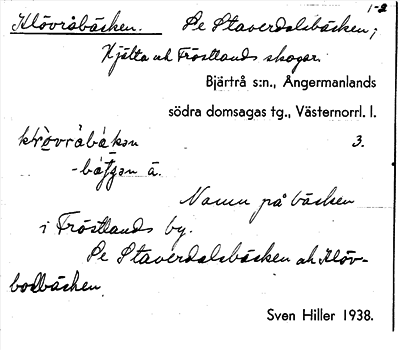 1-2
Klövråbäcken. Se Staverdalsbäcken;
Hjälta och Fröstlands skogar.
Bjärtrå s:n., Ångermanlands
södra domsagas tg., Västernorrl. l.
3.
Namn på bäcken
i Fröstlands by.
Se Staverdalsbäcken och Klöv-
bodbäcken.
Sven Hiller 1938.